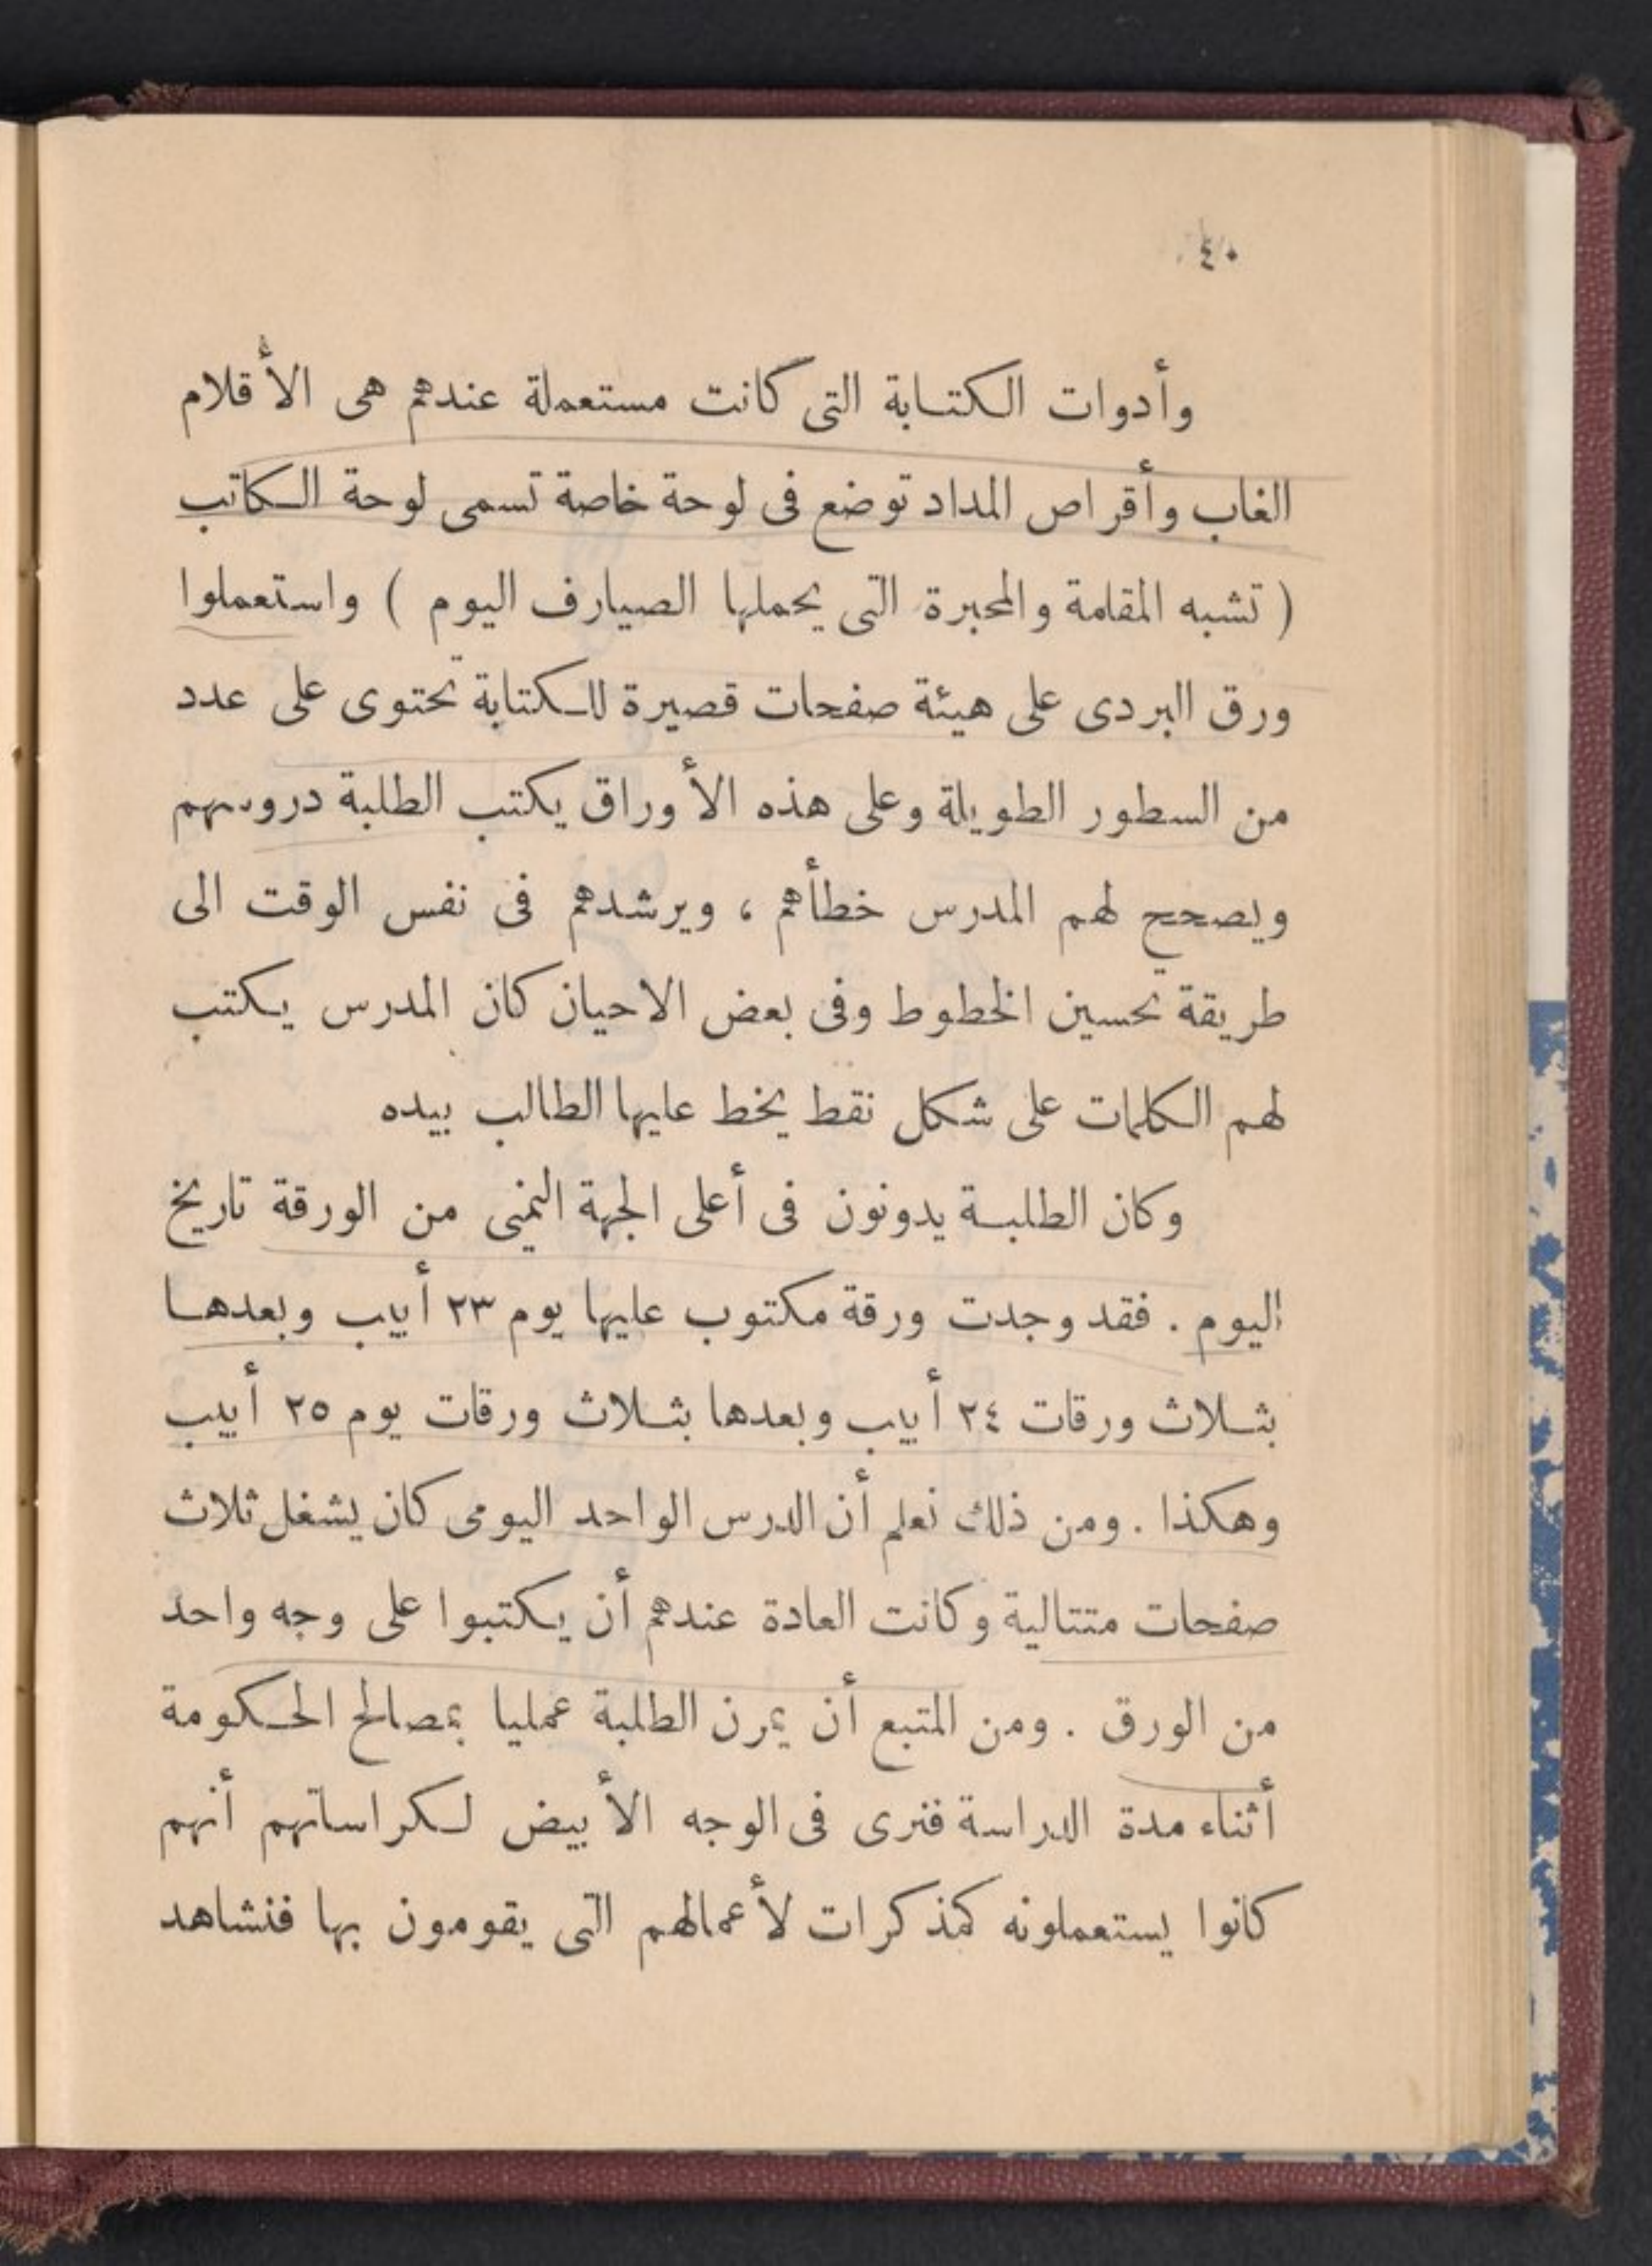 ٤٠
وأدوات الكتابة التى كانت مستعملة عندهم هى الأقلام
الغاب وأقراص المداد توضع فى لوحة خاصة تسمى لوحة الكاتب
( تشبه المقلمة والمحبرة التى يحملها الصيارف اليوم ) واستعملوا
ورق البردى على هيئة صفحات قصيرة للكتابة تحتوى على عدد
من السطور الطويلة وعلى هذه الأوراق يكتب الطلبة دروسهم
ويصحح لهم المدرس خطأهم ، ويرشدهم فى نفس الوقت الى
طريقة تحسين الخطوط وفى بعض الاحيان كان المدرس يكتب
لهم الكلمات على شكل نقط يخط عليها الطالب بيده
وكان الطلبة يدونون فى أعلى الجهة اليمنى من الورقة تاريخ
اليوم . فقد وجدت ورقة مكتوب عليها يوم ٢٣ أبيب وبعدها
بثلاث ورقات ٢٤ أبيب وبعدها بثلاث ورقات يوم ٢٥ أبيب
وهكذا . ومن ذلك نعلم أن الدرس الواحد اليومى كان يشغل ثلاث
صفحات متتالية وكانت العادة عندهم أن يكتبوا على وجه واحد
من الورق . ومن المتبع أن يمرن الطلبة عمليا بمصالح الحكومة
أثناء مدة الدراسة فنرى فى الوجه الأبيض لكراساتهم أنهم
كانوا يستعملونه كمذكرات لأعمالهم التى يقومون بها فنشاهد